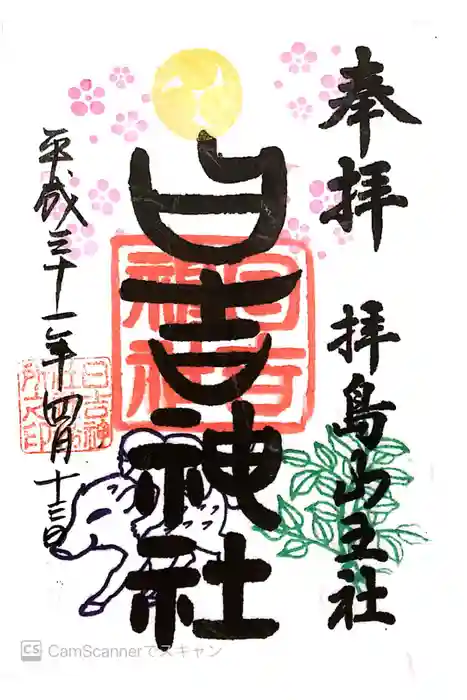 奉拝
拝島山王社
日吉神社
日吉神社
平成三十一年四月十三日
日吉神
社社務
所之印
CS CamScannerでスキャン